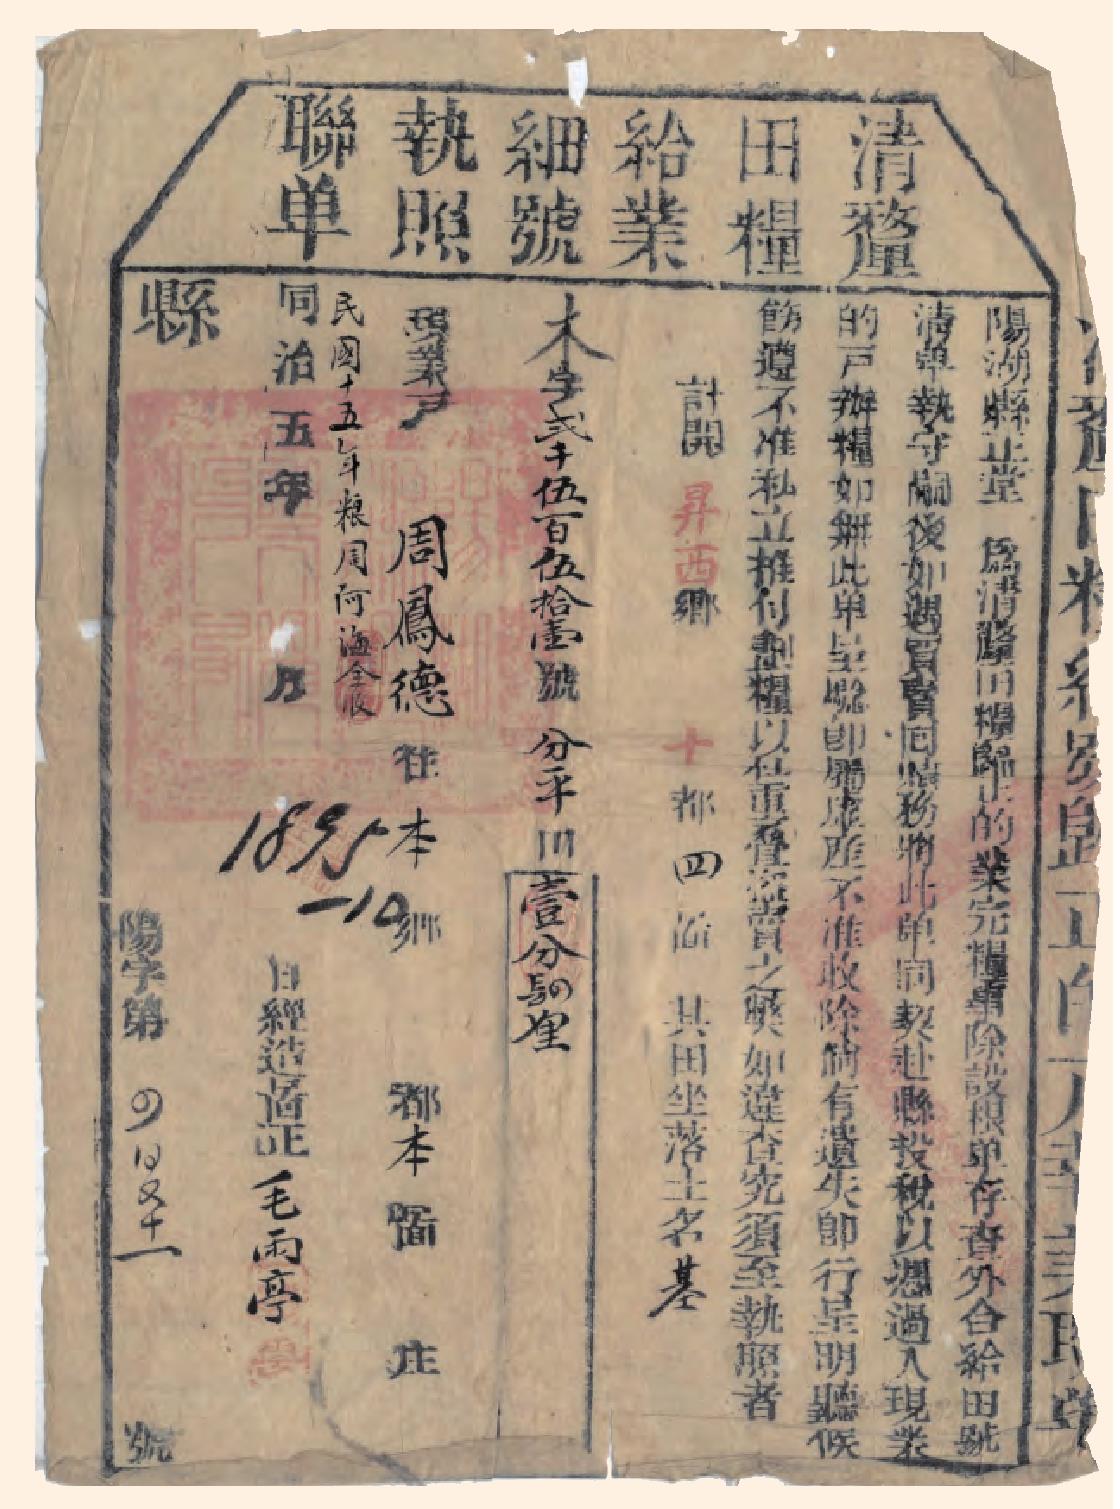 清釐
田糧
給業
細號
執照
聯单
陽湖縣正堂 爲清釐田糧歸正的業完糧事除設根单存査外合給田號
清单執守嗣後如遇買賣囘贖務將此单同契赴縣投稅以憑過入現業
的戸辦糧如無此单呈驗卽屬虚産不准收除倘有遺失卽行呈明聽候
飭遵不准私立推付劃糧以杜重疊盜賣之獘如違查究須至執照者
計開 昇西鄉 十都四啚 其田坐落土名基
木字弍千伍百伍拾壹號 分平田
壹分 〇 厘
現業戸 周鳳德 住本鄉 都本圖 庄
民國十五年粮周阿海全收
同治五年 月 日經造啚正 毛雨亭
1895
-10
縣
陽字第 號